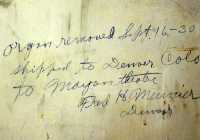 organ removed Sept. 16-30
shipped to Denver Colo
to Mayan theatre
Fred H. Meunier
Denver